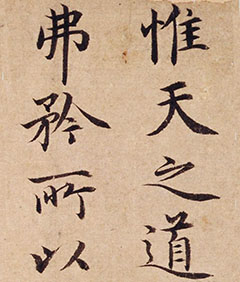 惟天之道
弗矜所以